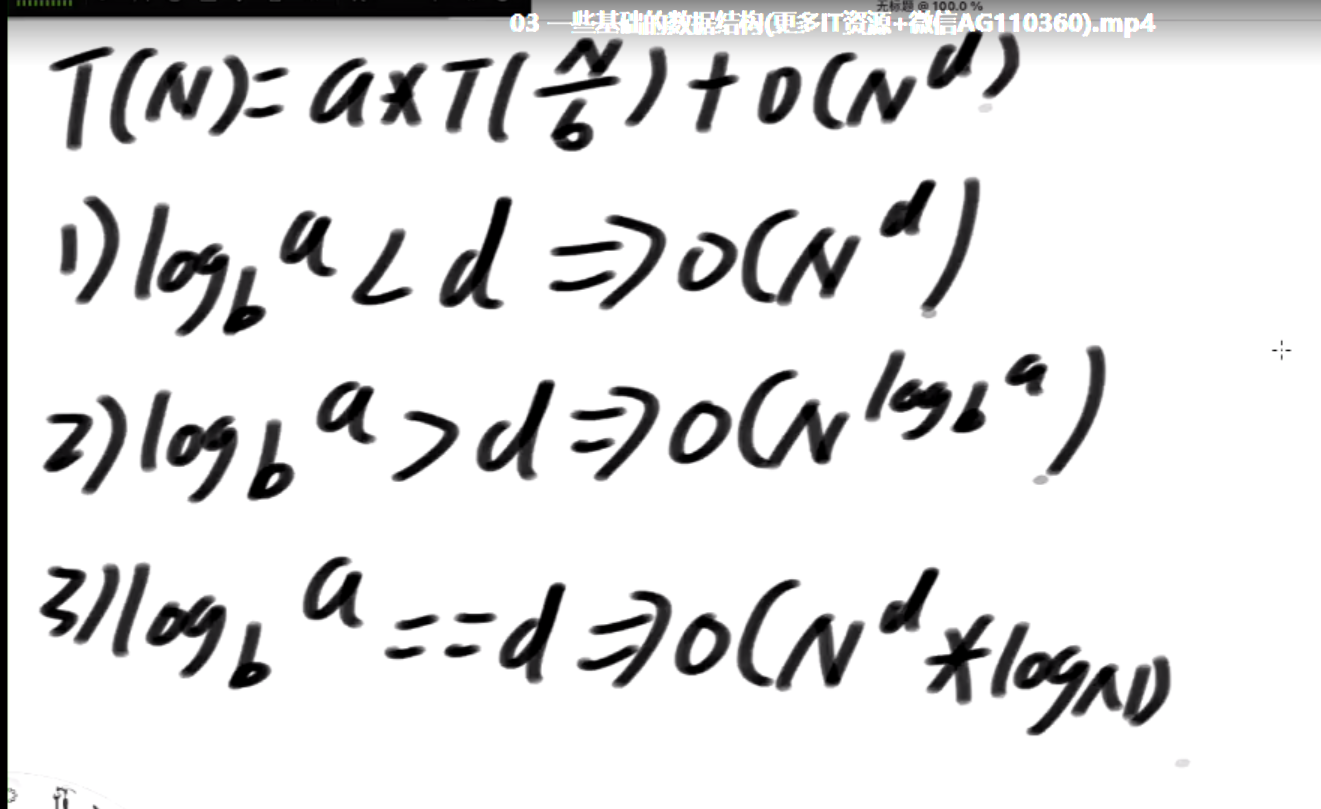 无标题 @ 100.0 %
03 一些基础的数据结构(更多IT资源+微信AG110360).mp4
T(N)= a*T(N/b)+O(N^d)
1) log_b^a < d => O(N^d)
2) log_b^a > d => O(N^log_b^a)
3) log_b^a == d => O(N^d * logN)